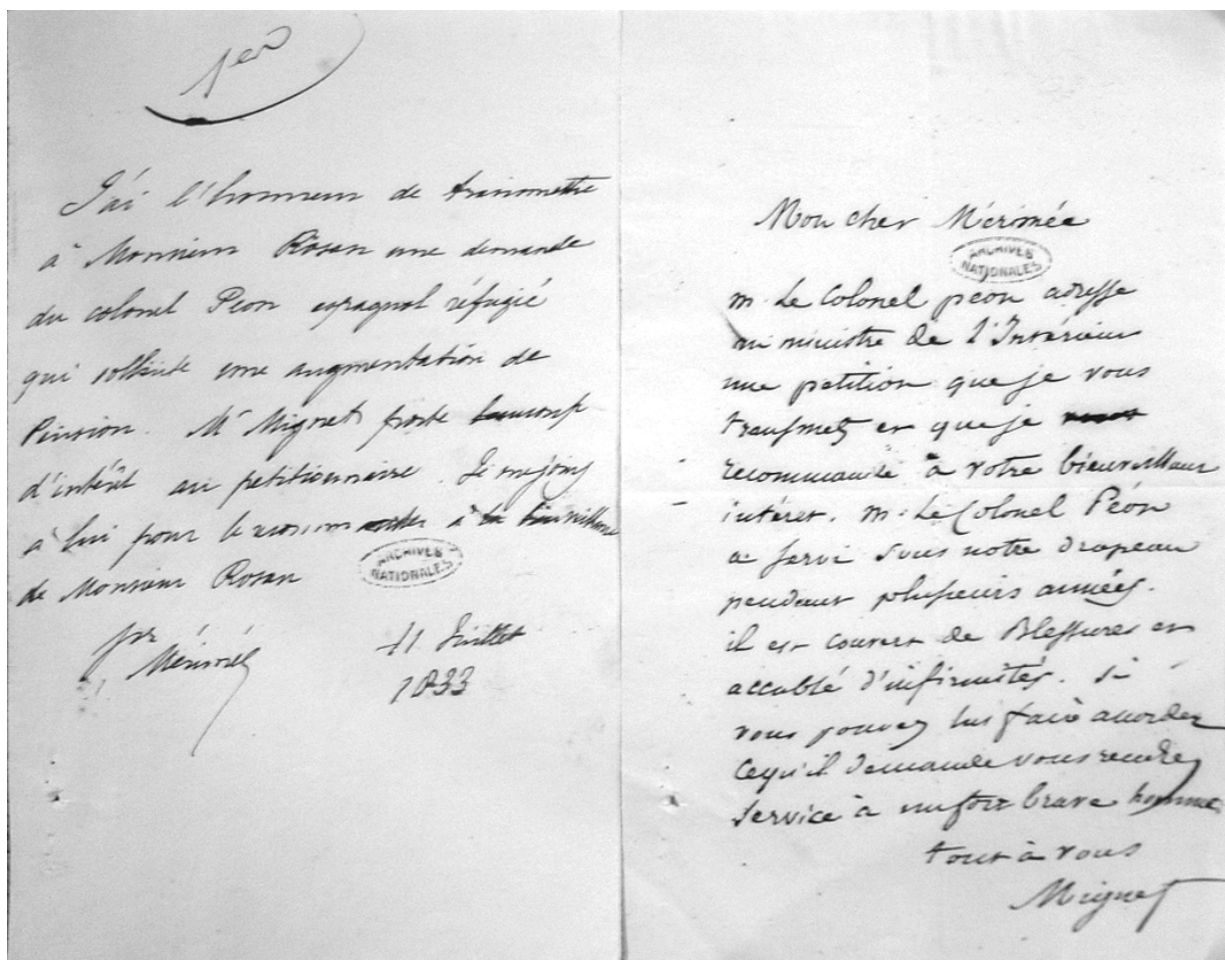 1er
J'ai l'honneur de transmettre
à Monsieur Rosan une demande
du colonel Peon espagnol réfugié
qui sollicite une augmentation de
Pension. Mr Mignet porte beaucoup
d'intérêt au petitionnaire. Je me joins
à lui pour le recommander à la bienveillance
de Monsieur Rosan
ARCHIVES NATIONALES
Pr Mérimée
11 Juillet
1833
Mon cher Mérimée
ARCHIVES NATIONALES
M. Le Colonel peon adresse
au ministre de l'Intérieur
une petition que je vous
transmets et que je
recommande à votre bienveillant
intéret. M. Le Colonel Péon
a servi sous notre drapeau
pendant plusieurs années.
il est couvert de Blessures et
accablé d'infirmités. Si
vous pouvez lui faire accorder
ce qu'il demande vous rendrez
service à un fort brave homme
tout à vous
Mignet